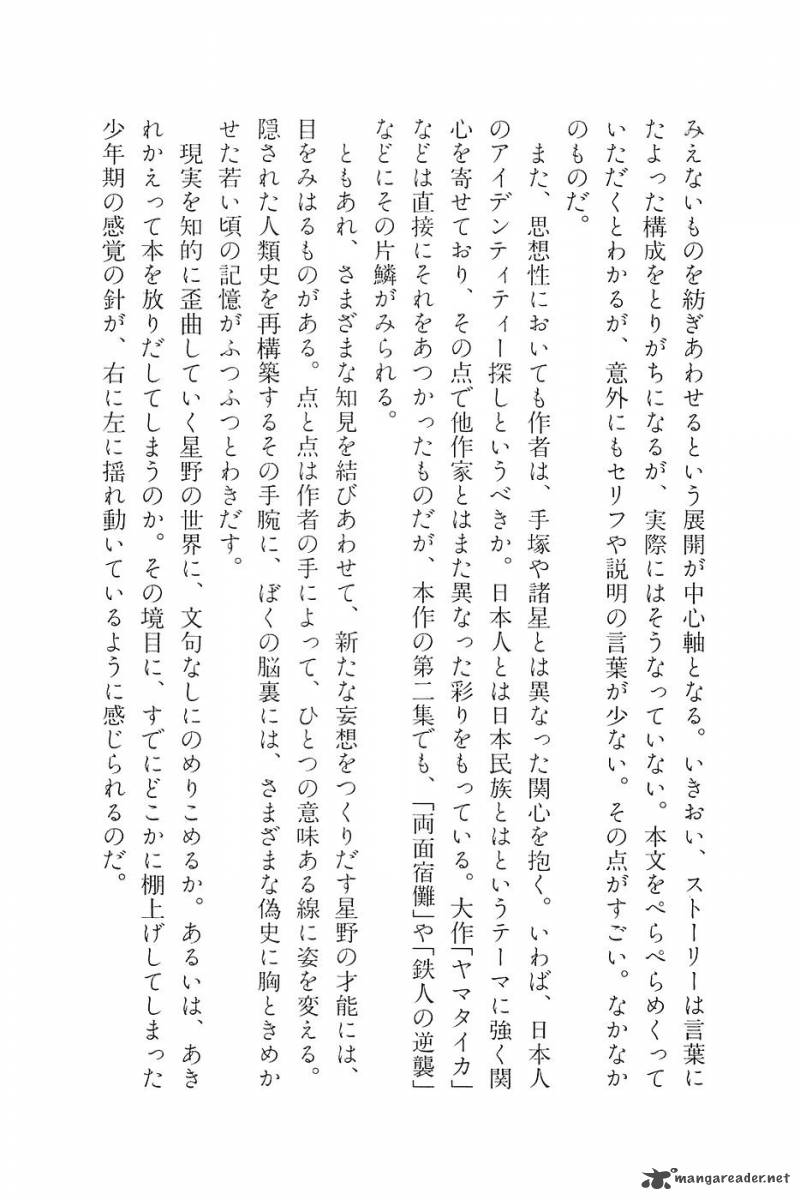 みえないものを紡ぎあわせるという展開が中心軸となる。いきおい、ストーリーは言葉に
たよった構成をとりがちになるが、実際にはそうなっていない。本文をぺらぺらめくって
いただくとわかるが、意外にもセリフや説明の言葉が少ない。その点がすごい。なかなか
のものだ。
また、思想性においても作者は、手塚や諸星とは異なった関心を抱く。いわば、日本人
のアイデンティティー探しというべきか。日本人とは日本民族とはというテーマに強く関
心を寄せており、その点で他作家とはまた異なった彩りをもっている。大作「ヤマタイカ」
などは直接にそれをあつかったものだが、本作の第二集でも、「両面宿儺」や「鉄人の逆襲」
などにその片鱗がみられる。
ともあれ、さまざまな知見を結びあわせて、新たな妄想をつくりだす星野の才能には、
目をみはるものがある。点と点は作者の手によって、ひとつの意味ある線に姿を変える。
隠された人類史を再構築するその手腕に、ぼくの脳裏には、さまざまな偽史に胸ときめか
せた若い頃の記憶がふつふつとわきだす。
現実を知的に歪曲していく星野の世界に、文句なしにのめりこめるか。あるいは、あき
れかえって本を放りだしてしまうのか。その境目に、すでにどこかに棚上げしてしまった
少年期の感覚の針が、右に左に揺れ動いているように感じられるのだ。
mangareader.net